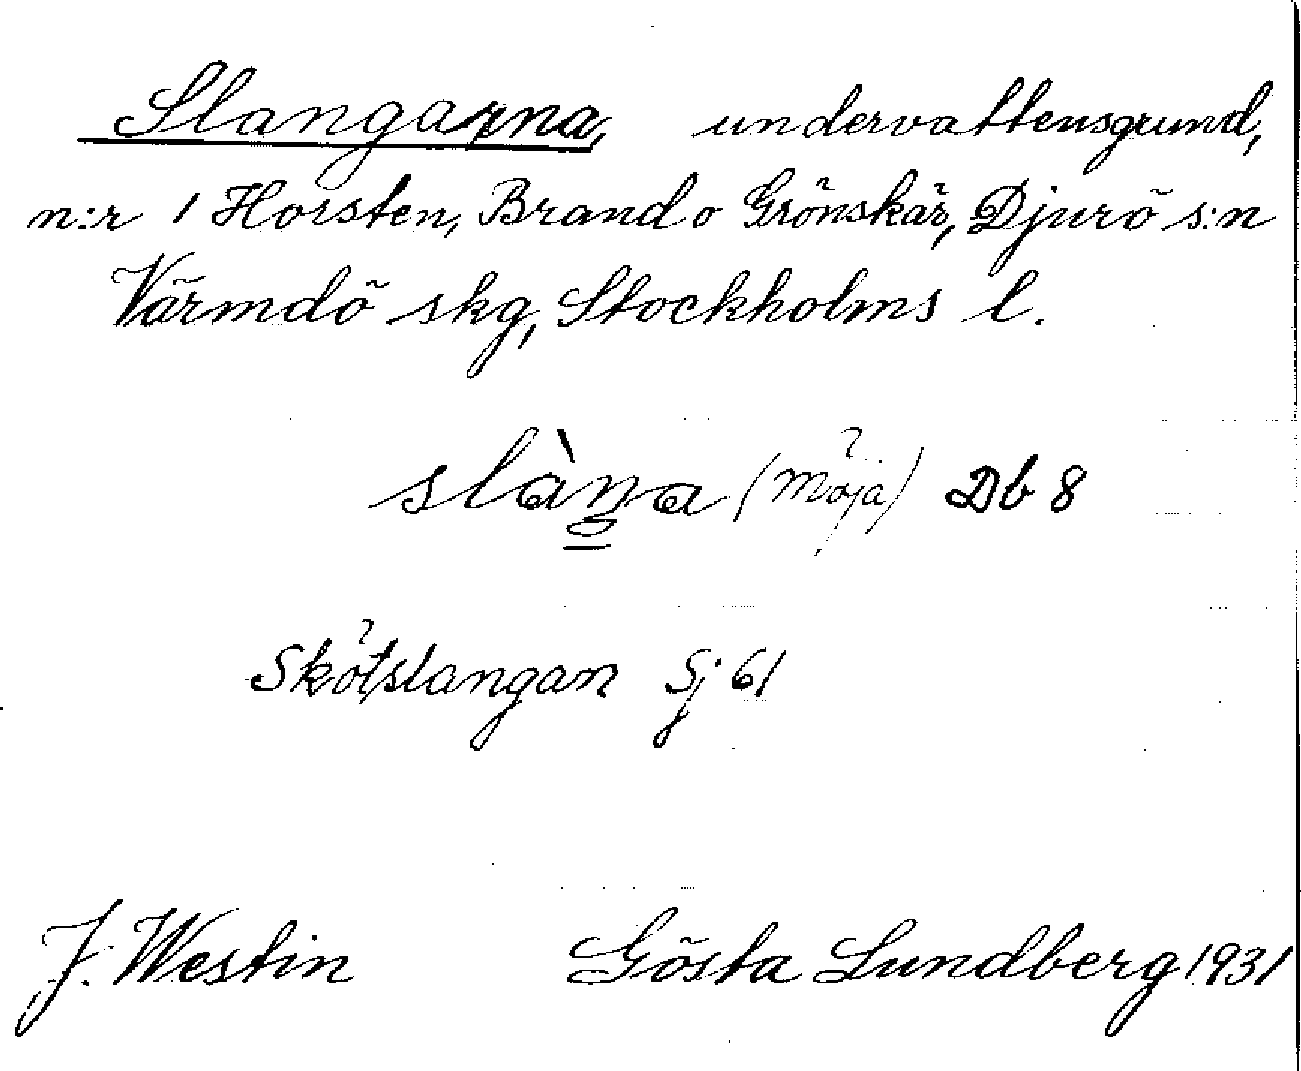 Slangarna, undervattensgrund,
n:r 1 Horsten, Brand o Grönskär, Djurö s:n
Värmdö skg, Stockholms l.
slàŋa (Möja) Db 8
Skötslangan Sj 61
J. Westin Gösta Lundberg 1931